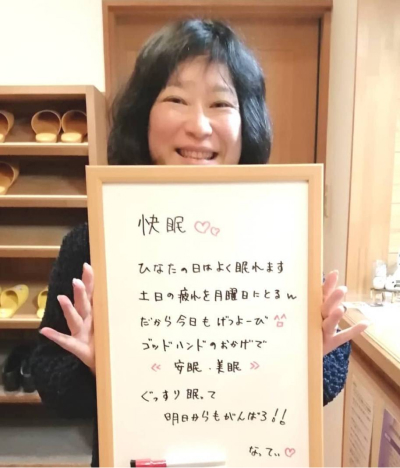 快眠♡♡
ひなたの日はよく眠れます
土日の疲れを月曜日にとるw
だから今日もげつよーび^^
ゴッドハンドのおかげで
《 安眠・美眠 》
ぐっすり眠って
明日からもがんばろ!!
なってぃ♡